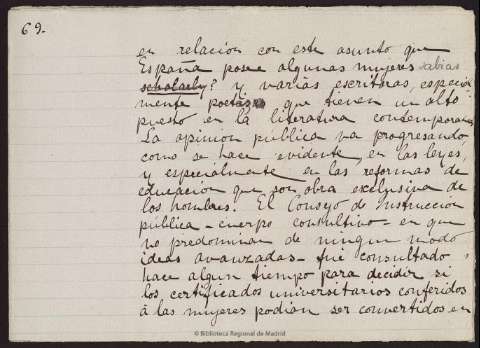 69.
en relación con este asunto que
España posee algunas mujeres sabias
scholarly? y varias escritoras, especial
mente poetas que tienen un alto
puesto en la literatura contemporanea
La opinión pública va progresando
como se hace evidente, en las leyes,
y especialmente en las reformas de
educación que son obra exclusiva de
los hombres. El Consejo de Instrucción
pública - cuerpo consultivo - en que
no predominan de ningun modo
ideas avanzadas - fué consultado
hace algun tiempo para decidir si
los certificados universitarios conferidos
á las mujeres podían ser convertidos en
© Biblioteca Regional de Madrid